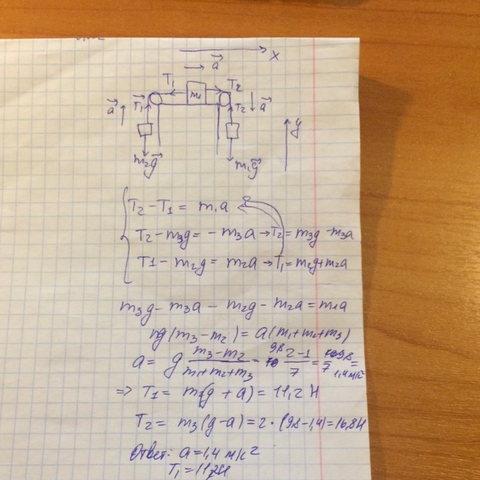 x
a
T₁ m₁ T₂
a T₁ T₂ a
y
m₂g m₁g
T₂ - T₁ = m₁a
T₂ - m₃g = - m₃a → T₂ = m₃g - m₃a
T1 - m₂g = m₂a → T₁ = m₂g + m₂a
m₃g - m₃a - m₂g - m₂a = m₁a
g(m₃ - m₂) = a(m₁ + m₂ + m₃)
a = g (m₃ - m₂)/(m₁ + m₂ + m₃) = 9,8 (2-1)/7 = 9,8/7 = 1,4 м/с²
⇒ T₁ = m₂(g + a) = 11,2 Н
T₂ = m₃(g - a) = 2 · (9,8 - 1,4) = 16,8 Н
Ответ: a = 1,4 м/с²